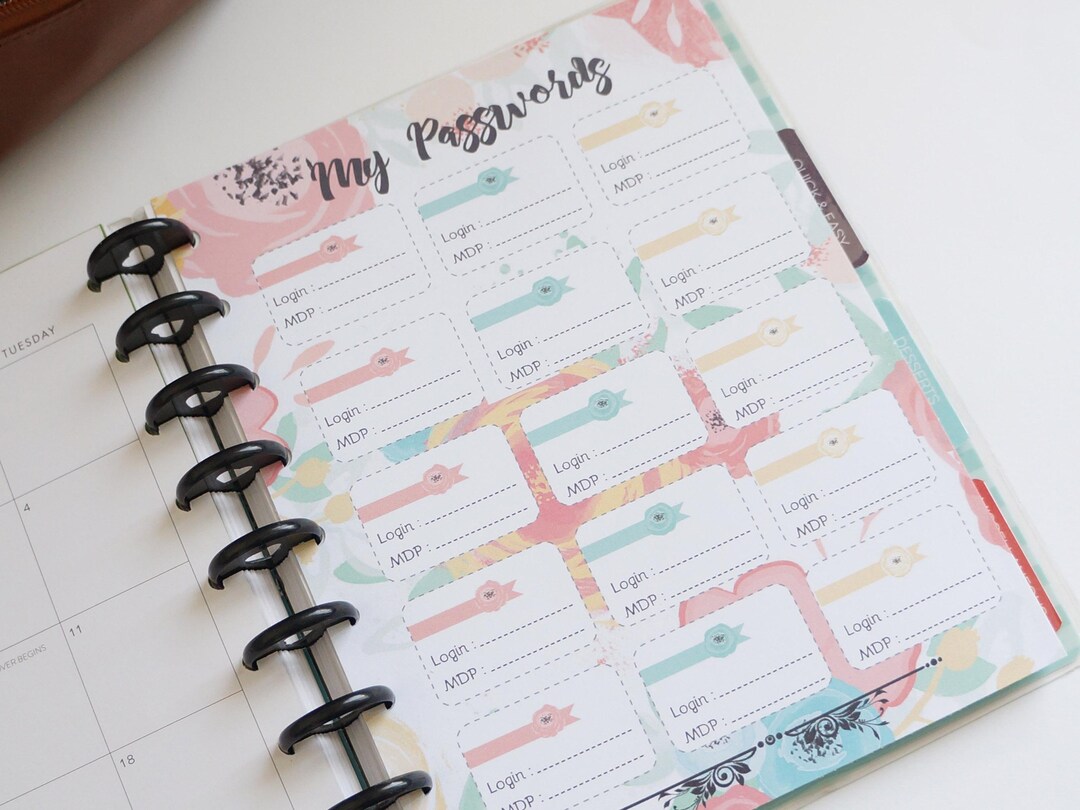 TUESDAY
4
11
VER BEGINS
18
My Passwords
Login :
MDP :
Login :
MDP :
Login :
MDP :
Login :
MDP :
Login :
MDP :
Login :
MDP :
Login :
MDP :
Login :
MDP :
Login :
MDP :
Login :
MDP :
Login :
MDP :
Login :
MDP :
Login :
MDP :
Login :
MDP :
Login :
MDP :
QUICK & EASY
DESSERTS